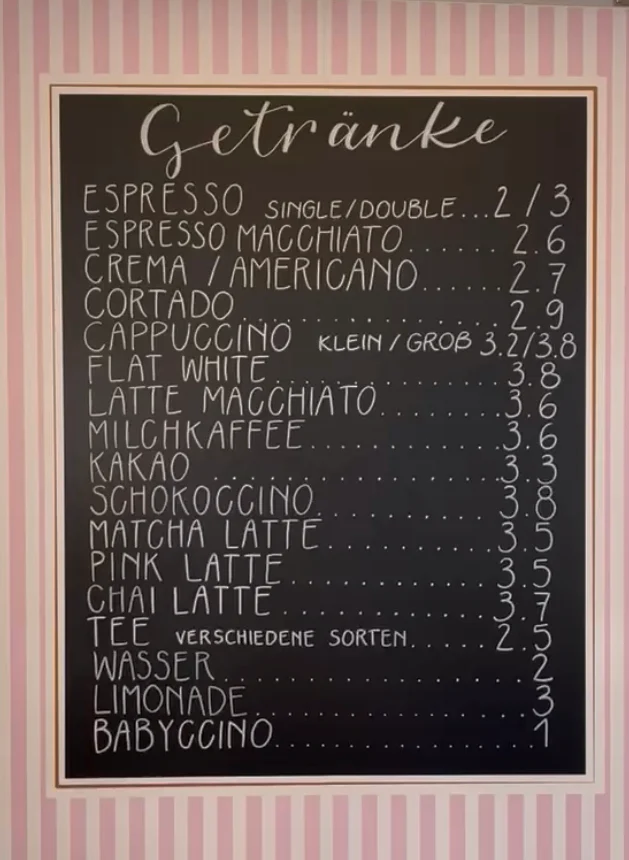 Getränke
ESPRESSO SINGLE/DOUBLE...2 / 3
ESPRESSO MACCHIATO....... 2.6
CREMA / AMERICANO......2.7
CORTADO..................2.9
CAPPUCCINO KLEIN / GROß 3.2/3.8
FLAT WHITE................3.8
LATTE MACCHIATO........3.6
MILCHKAFFEE.............3.6
KAKAO ...................3.3
SCHOKOCCINO............3.8
MATCHA LATTE............3.5
PINK LATTE...............3.5
CHAI LATTE...............3.7
TEE VERSCHIEDENE SORTEN.....2.5
WASSER.....................2
LIMONADE..................3
BABYCCINO.................1